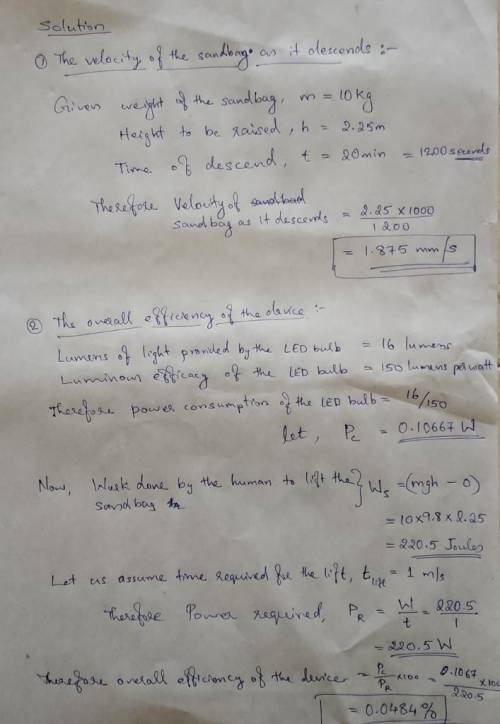 Solution
① The velocity of the sandbag as it descends :-
Given weight of the sandbag, m = 10 Kg
Height to be raised, h = 2.25m
Time of descend, t = 20min = 1200 seconds
Therefore Velocity of
sandbag as it descends = 2.25 × 1000 / 1200
= 1.875 mm/s
② The overall efficiency of the device :-
Lumens of light provided by the LED bulb = 16 lumens
Luminous efficacy of the LED bulb = 150 lumens per watt
Therefore power consumption of the LED bulb = 16/150
let, Pc = 0.10667 W
Now, Work done by the human to lift the } Ws = (mgh - 0)
sandbag
= 10×9.8×2.25
= 220.5 Joules
Let us assume time required for the lift, t lift = 1 m/s
Therefore Power required, PR = W/t = 220.5/1
= 220.5 W
Therefore overall efficiency of the device = Pc/PR ×100 = 0.1067 ×100/220.5
= 0.0484%